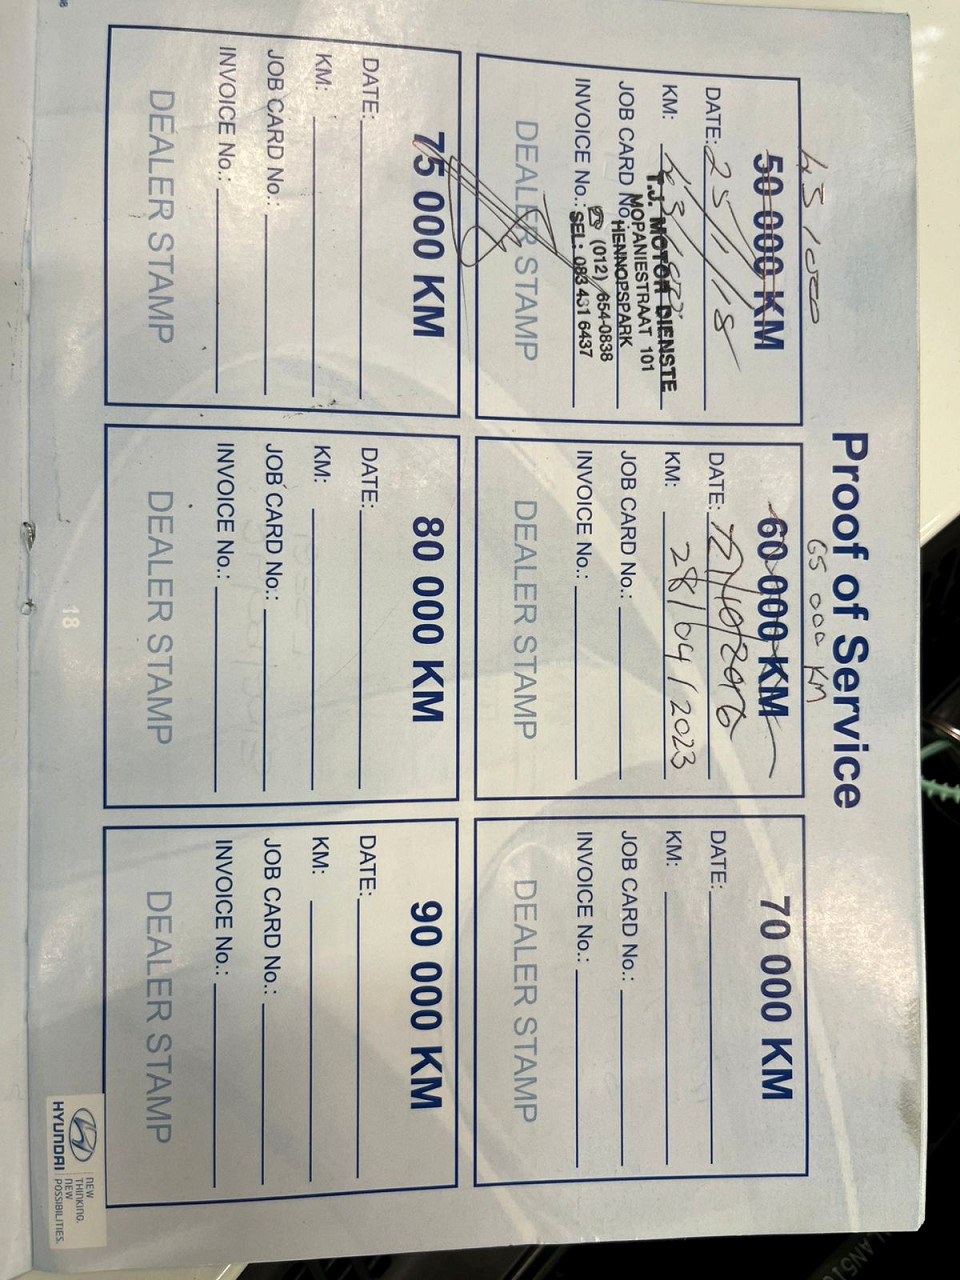 Proof of Service
45 000
50 000 KM
DATE: 25/11/18
KM:
JOB CARD No.:
INVOICE No.:
DEALER STAMP
T.J. MOTOR DIENSTE
MOPANIESTRAAT 101
HENNOPSPARK
☎ (012) 654-0838
SEL: 083 431 6437
65 000 KM
60 000 KM
DATE:
KM: 28/04/2023
JOB CARD No.:
INVOICE No.:
DEALER STAMP
70 000 KM
DATE:
KM:
JOB CARD No.:
INVOICE No.:
DEALER STAMP
75 000 KM
DATE:
KM:
JOB CARD No.:
INVOICE No.:
DEALER STAMP
80 000 KM
DATE:
KM:
JOB CARD No.:
INVOICE No.:
DEALER STAMP
90 000 KM
DATE:
KM:
JOB CARD No.:
INVOICE No.:
DEALER STAMP
18
HYUNDAI
NEW
THINKING.
NEW
POSSIBILITIES.